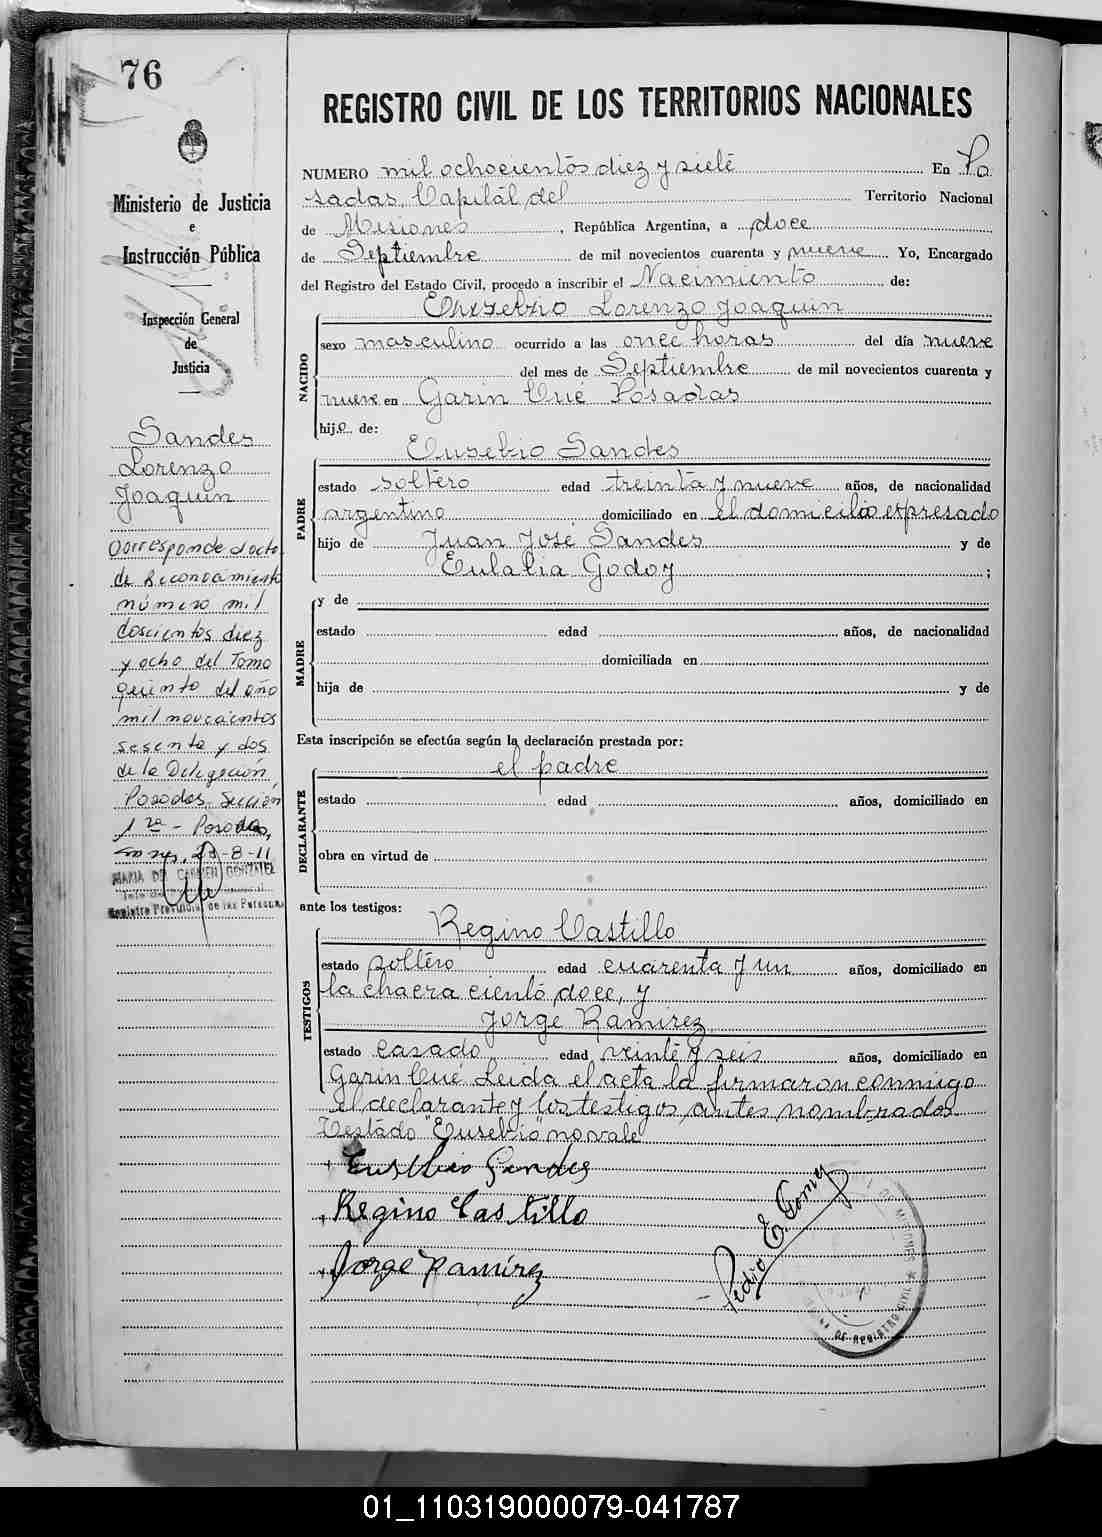 76
REGISTRO CIVIL DE LOS TERRITORIOS NACIONALES
Ministerio de Justicia
e
Instrucción Pública
Inspección General
de
Justicia
Sandes
Lorenzo
Joaquin
Corresponde al acta
de Reconocimiento
número mil
doscientos diez
y ocho del Tomo
quinto del año
mil novecientos
sesenta y dos
de la Delegación
Posadas, Sección
1ra - Posadas,
23-8-11
MARIA DEL CARMEN GONZALEZ
Registro Provincial de las Personas
NUMERO mil ochocientos diez y siete En Po
sadas, Capital del Territorio Nacional
de Misiones, República Argentina, a doce
de Septiembre de mil novecientos cuarenta y nueve Yo, Encargado
del Registro del Estado Civil, procedo a inscribir el Nacimiento de:
Eusebio Lorenzo Joaquin
NACIDO
sexo masculino ocurrido a las once horas del día nueve
del mes de Septiembre de mil novecientos cuarenta y
nueve en Garin Cué Posadas
hijo de:
Eusebio Sandes
PADRE
estado soltero edad treinta y nueve años, de nacionalidad
argentino domiciliado en el domicilio expresado
hijo de Juan José Sandes y de
Eulalia Godoy ;
MADRE
y de
estado edad años, de nacionalidad
domiciliada en
hija de y de
Esta inscripción se efectúa según la declaración prestada por:
el padre
DECLARANTE
estado edad años, domiciliado en
obra en virtud de
ante los testigos:
Regino Castillo
TESTIGOS
estado soltero edad cuarenta y un años, domiciliado en
la chacra ciento doce, y
Jorge Ramirez
estado casado edad veinte y seis años, domiciliado en
Garin Cué Leida el acta la firmaron conmigo
el declarante y los testigos antes nombrados
Testado "Eusebio" no vale
Eusebio Sandes
Regino Castillo
Jorge Ramírez
Pedro E. Gomez
DE MISIONES * OFICINA DE REGISTRO CIVIL
01_110319000079-041787